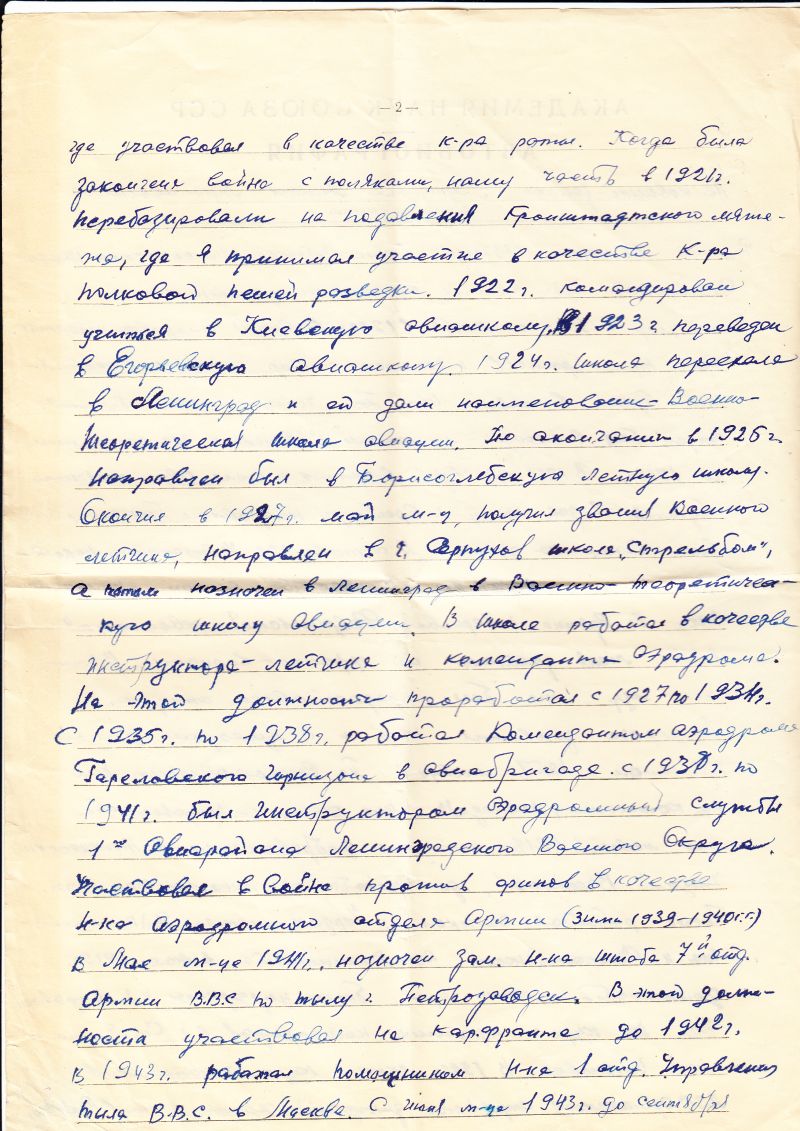 — 2 —
где участвовал в качестве к-ра роты. Когда была
закончена война с поляками, нашу часть в 1921г.
перебазировали на подавления Кронштадтского мяте-
жа, где я принимал участие в качестве К-ра
полковой пешей разведки. 1922г. командирован
учиться в Киевскую авиашколу. В 1923 г. переведен
в Егорьевскую авиашколу. 1924г. школа переехала
в Ленинград и ей дали наименование Военно-
теоретическая школа авиации. По окончании в 1926г.
направлен был в Борисоглебскую летную школу.
Окончил в 1927г. май м-ц, получил звания Военного
летчика, направлен в г. Серпухов школа „Стрельбом",
а потом назначен в Ленинград в Военно-теоретичес-
кую школу Авиации. В школе работал в качестве
инструктора-летчика и коменданта аэродрома.
На этой должности проработал с 1927 по 1934г.
С 1935г. по 1938г. работал Комендантом аэродрома
Гареловского гарнизона в авиабригаде. с 1938г. по
1941г. был инструктором аэродромный службы
1го Авиарайона Ленинградского Военного Округа.
Участвовал в Война против финов в качестве
Н-ка аэродромного отдела Армии (зима 1939-1940г.г.)
в Мае м-це 1941г. назначен зам. н-ка штаба 7й отд.
Армии В.В.С по тылу г. Петрозаводск. В этой долж-
ности участвовал на кар.фронта до 1942г.
в 1943г. работал помощником Н-ка 1 отд. Управления
тыла В.В.С. в Москва. С июня м-ца 1943г. до сентября